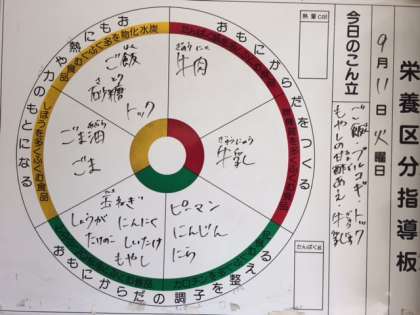 栄養区分指導板
9月11日火曜日
今日のこん立
ご飯・プルコギ・トック
もやしの甘酢あえ・牛乳
熱量
たんぱく質
おもにからだをつくる
おもにからだの調子を整える
おもに熱や力のもとになる
ぎゅうにく
牛肉
ぎゅうにゅう
牛乳
はん
ご飯
さとう
砂糖
トック
ごま油
ごま
玉ねぎ
しょうが にんにく
たけのこ しいたけ
もやし
ピーマン
にんじん
にら